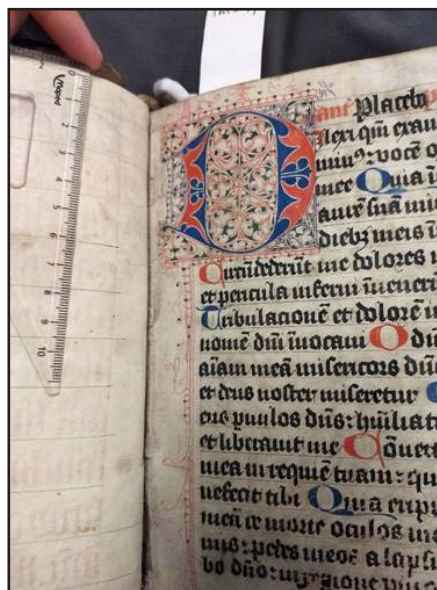 0
1
2
3
4
5
6
7
8
9
10
ant Placebo
Dilexi qm̄ exau
vocē o
mee Quia ī
aurē suā
diebꝫ meis ī
Circūdederūt me dolores
et pericula inferni īueneri
Tribulacionē et dolorē ī
nomē dn̄i īuocaui O dn̄
aīam meā misericors dn̄
et deus noster miseretur
ens puulos dn̄s: hūiliat
et liberauit me Cōuert
mea in requiē tuam: qu
nefecit tibi Quia eripu
meā de morte oculos me
mis: pedes meos a lapsu
bo dn̄o: in regione